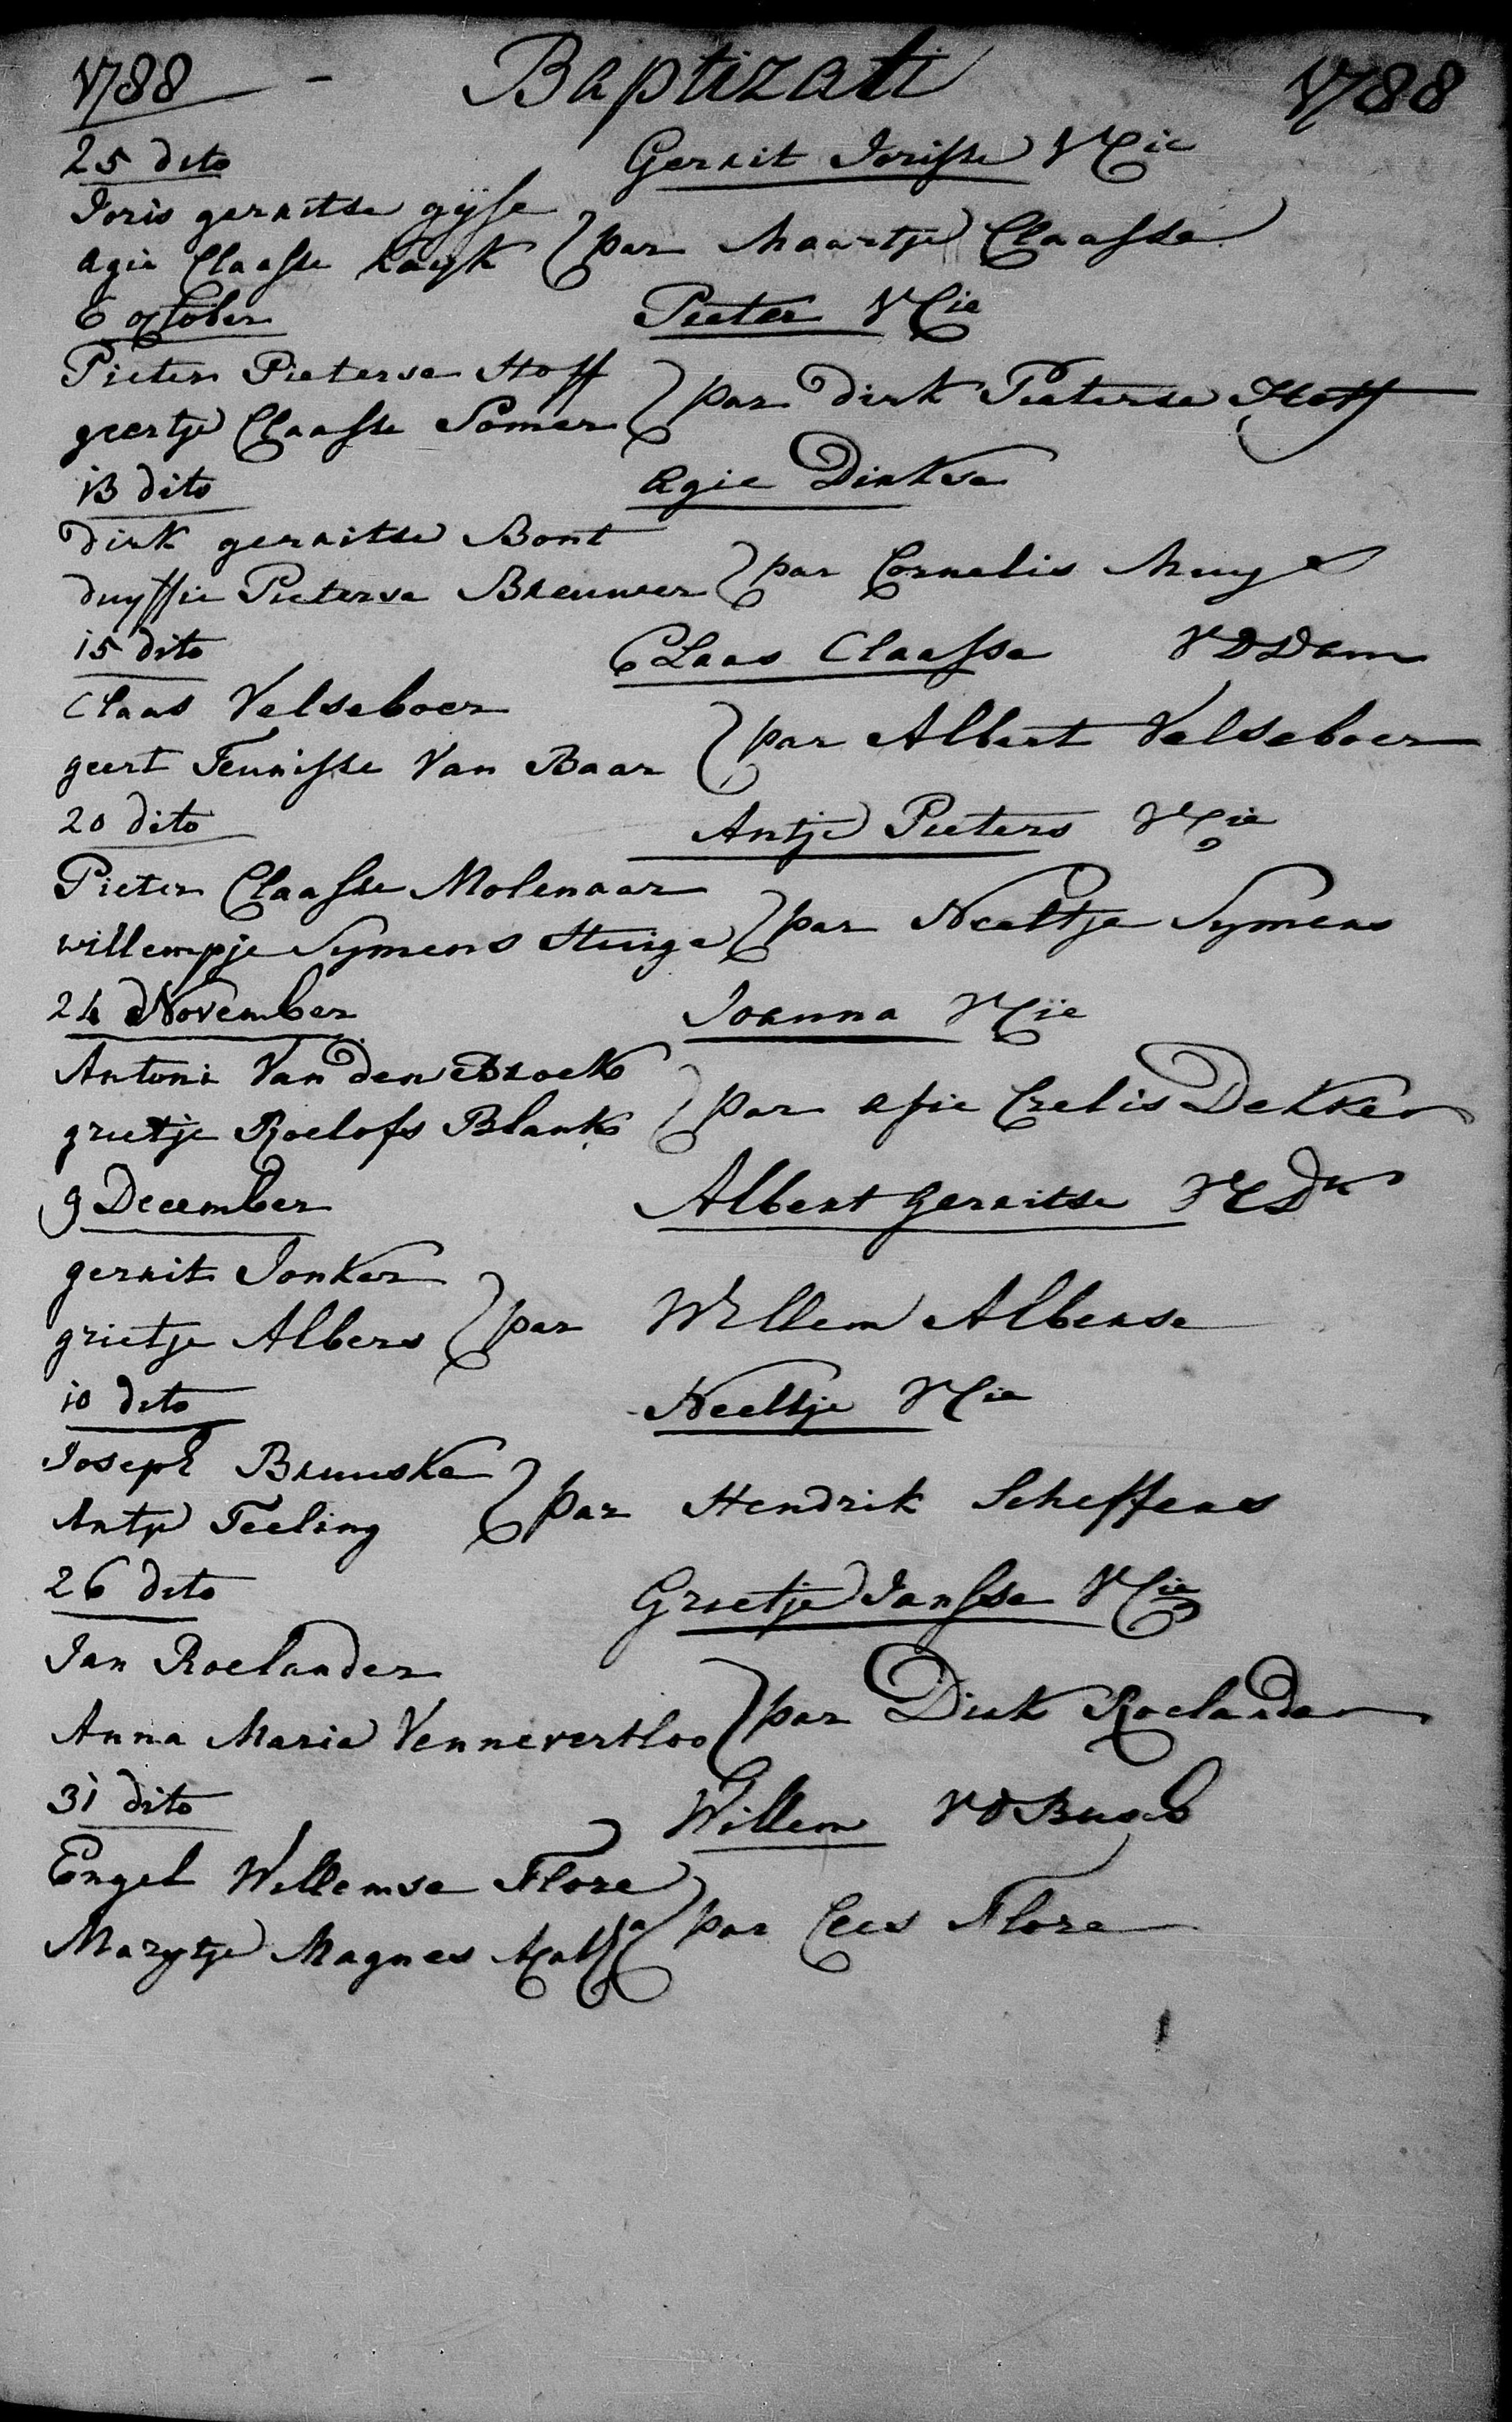 1788 - Baptizati 1788
25 dito Gerrit Jorisse
Joris gerritse gijse
Agie Claasse par Maartje Claasse
6 october Pieter
Pieter Pieterse Hoff
geertje Claasse Somer par Dirk Pieterse Hoff
13 dito Agie Dirkse
Dirk gerritse Bont
duyffie Pieterse Breuwer par Cornelis Muys
15 dito Claas Claasse VD Dam
Claas Velseboer
geert Teunisse Van Baar par Albert Velseboer
20 dito Antje Pieters
Pieter Claasse Molenaar
willempje Symens par Neeltje Symens
24 November Joanna
Antoni Van den Broek
grietje Roelofs Blank par Afie Crelis Dekker
9 December Albert Gerritse
gerrit Jonker
grietje Albers par Willem Alberse
10 dito Neeltje
Joseph
Antje Teeling par Hendrik Scheffers
26 dito Grietje Jansse
Jan Roelander
Anna Maria Vennevertloo par Dirk Roelander
31 dito Willem
Engel Willemse Flore
Marytje Magnes par Cees Flore